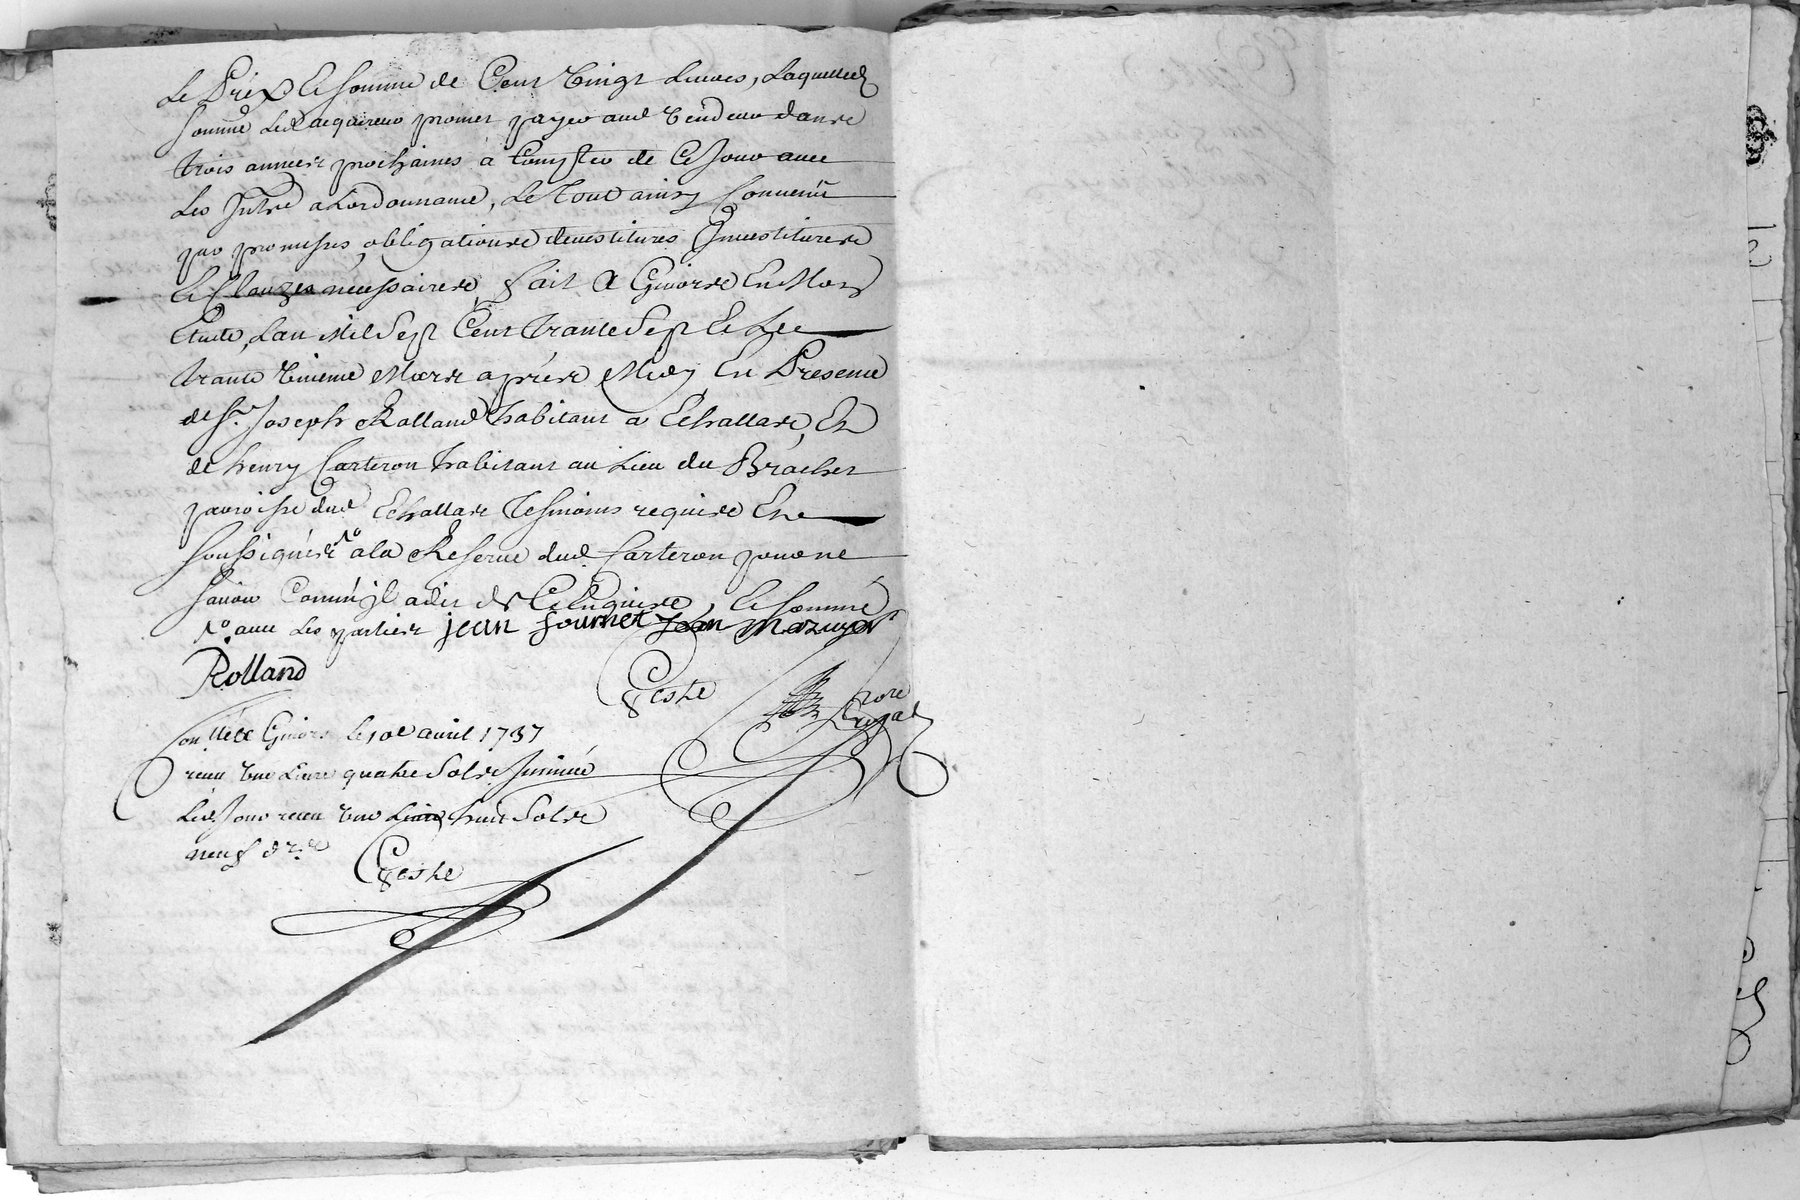 Le Prix Et Somme de Cent Vingt Livres, Laquelled
Somme Led acquereur promet payer aud Vendeur dans
trois années prochaines a Compter de Ce Jour avec
Les Jntd a Lordonnance, Le Tout ainsy Convenu
par promesses, obligations devestitures Jnvestitures
Et Clauzes necessaires, fait A Givors En Mon
Etude, Lan Mil Sept Cent Trante Sept Et Le
trante Vnieme Mars après Midy En Presence
de Sr. Joseph Rolland habitant a Echallas, Et
de henry Carteron habitant au Lieu du Brachet
parroisse dud Echallas Tesmoins requis Et
soussignés a la Reserve dud. Carteron pour ne
savoir Comm'jl a dit de Ce Enquis, Et sommé
avec Les parties jean fournet Jean mazuyer
Rolland
Geste
nore
Royal
Conllé a Givors Le 10e avril 1737
receu Vne Livre quatre Sols Jnsinué
Led. Jour receu Vne Livre huit Sols
neuf drs
Geste